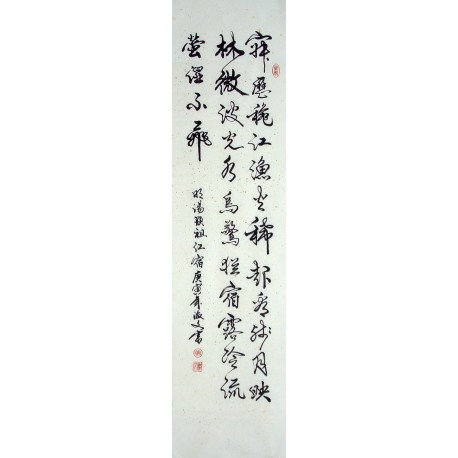 寂歷秋江漁火稀起看残月映
林微波光水鳥驚猶宿露冷流
螢溼不飛
明湯顯祖江宿庚寅年文書